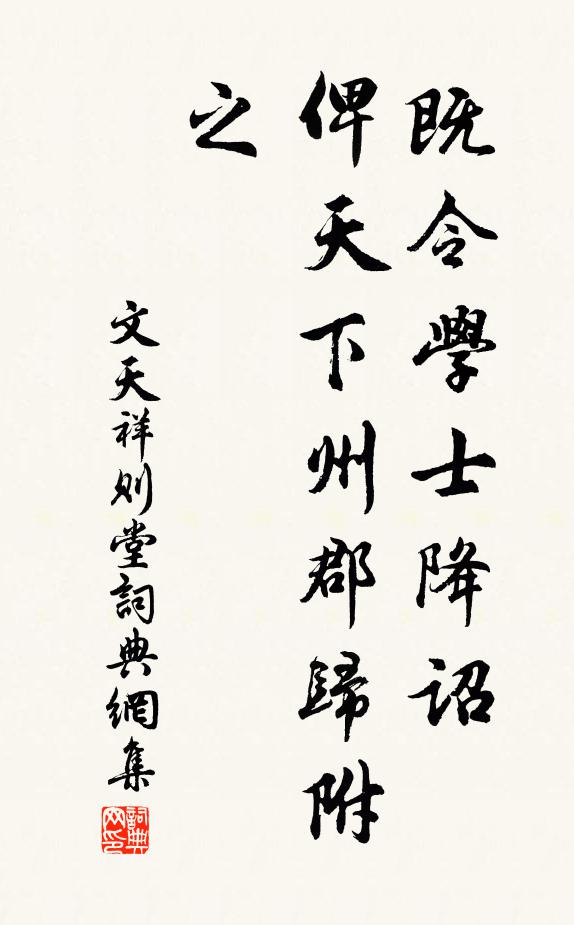 既令學士降詔
俾天下州郡歸附
之
文天祥則堂詞典網集
詞典
网印